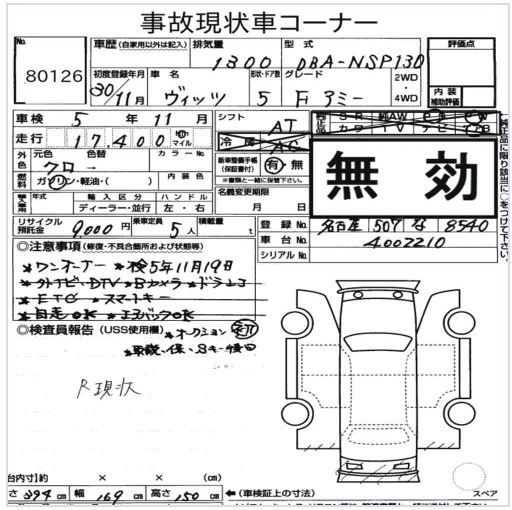 事故現状車コーナー
No. 80126
車歴 (自家用以外は記入) 排気量 1300 型式 DBA-NSP130
評価点
初度登録年月 30/11月 車名 ヴィッツ 形状・ドア数 5 グレード F 2WD・4WD
内装補助評価
車検 5年 11月
シフト AT
走行 17,400 km マイル
冷房 AC
純正品 SR 純AW PS PW
カワ TV ナビ エアB
純正品に限り該当に○をつけて下さい。
外色 元色 クロ 色替 カラーNo.
燃料 ガソリン・軽油・( ) 内装色
新車整備手帳(保証書付) 有 無
※書類と一緒に保管下さい。
名義変更期限 月 日
無効
輸入車 年式 輸入区分 ディーラー・並行 ハンドル 左・右
リサイクル預託金 9,000円 乗車定員 5人 積載量 t
登録No. 名古屋 507 な 8540
車台No. 4002210
シリアルNo.
◎注意事項 (修復・不具合箇所および状態等)
*ワンオーナー *検5年11月19日
*外ナビ・DTV *Bカメラ *ドラレコ
*ETC *スマートキー
*自走OK *エアバックOK
◎検査員報告 (USS使用欄) *オークション 初
*取説、保、Sキー後日
R現状
台内寸)約 × × (cm)
さ 394 cm 幅 169 cm 高さ 150 cm
←(車検証上の寸法)
スペア